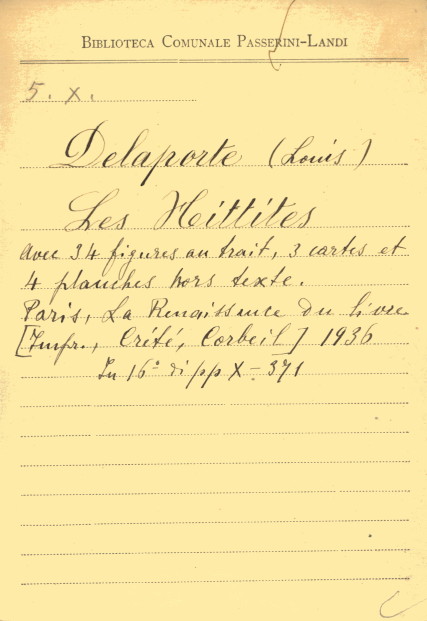 BIBLIOTECA COMUNALE PASSERINI-LANDI
5. X.
Delaporte (Louis)
Les Hittites
avec 34 figures au trait, 3 cartes et
4 planches hors texte.
Paris, La Renaissance du livre
[Impr., Crété, Corbeil] 1936
In 16° di pp X-371